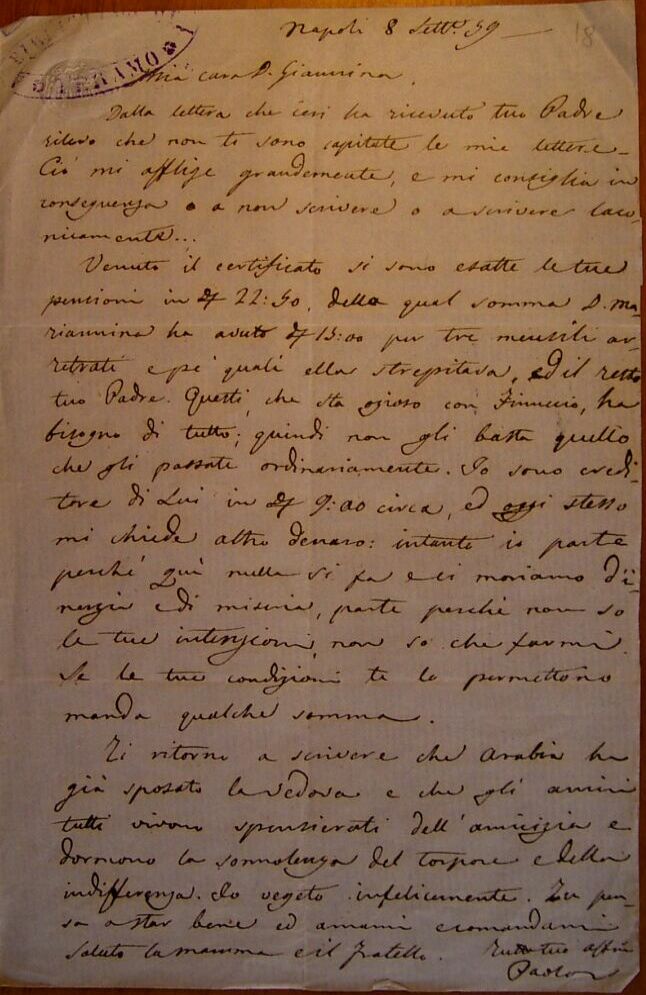 18
TERAMO
Napoli 8 Sett.e 59
Mia cara D. Giannina,
Dalla lettera che ieri ha ricevuto tuo Padre
rilevo che non ti sono capitate le mie lettere.
Ciò mi afflige grandemente, e mi consiglia in
conseguenza o a non scrivere o a scrivere laco-
nicamente...
Venuto il certificato si sono esatte le tue
pensioni in 22:50, della qual somma D. Ma-
riannina ha avuto 13:00 per tre mensili ar-
retrati e pe' quali ella strepitava, ed il resto
tuo Padre. Questi, che sta ozioso con, ha
bisogno di tutto; quindi non gli basta quello
che gli passate ordinariamente. Io sono credi-
tore di Lui in 9:00 circa, ed oggi stesso
mi chiede altro denaro: intanto io parte
perchè quì nulla si fa e ci moriamo d'i-
nerzia e di miseria, parte perchè non so
le tue intenzioni, non so che farmi.
Se le tue condizioni te lo permettono
manda qualche somma.
Ti ritorno a scrivere che Arabia ha
già sposato la vedova e che gli amici
tutti vivono spensierati dell'amicizia e
dormono la sonnolenza del torpore e della
indifferenza. Io vegeto infelicemente. Tu pen-
sa a star bene ed amami e comandami
Saluto la mamma e il fratello. tuo affmo
Paolo